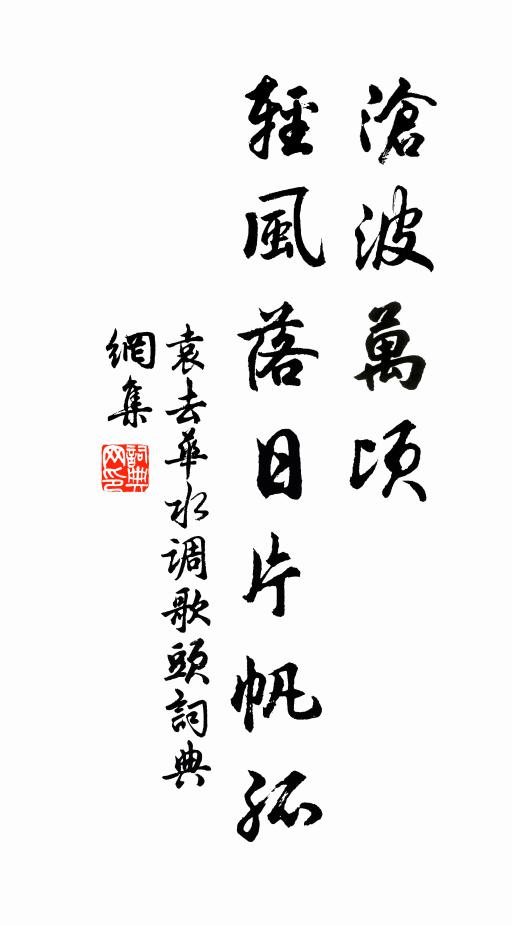 滄波萬頃
輕風落日片帆孤
袁去華水调歌頭詞典
網集
詞典
网印